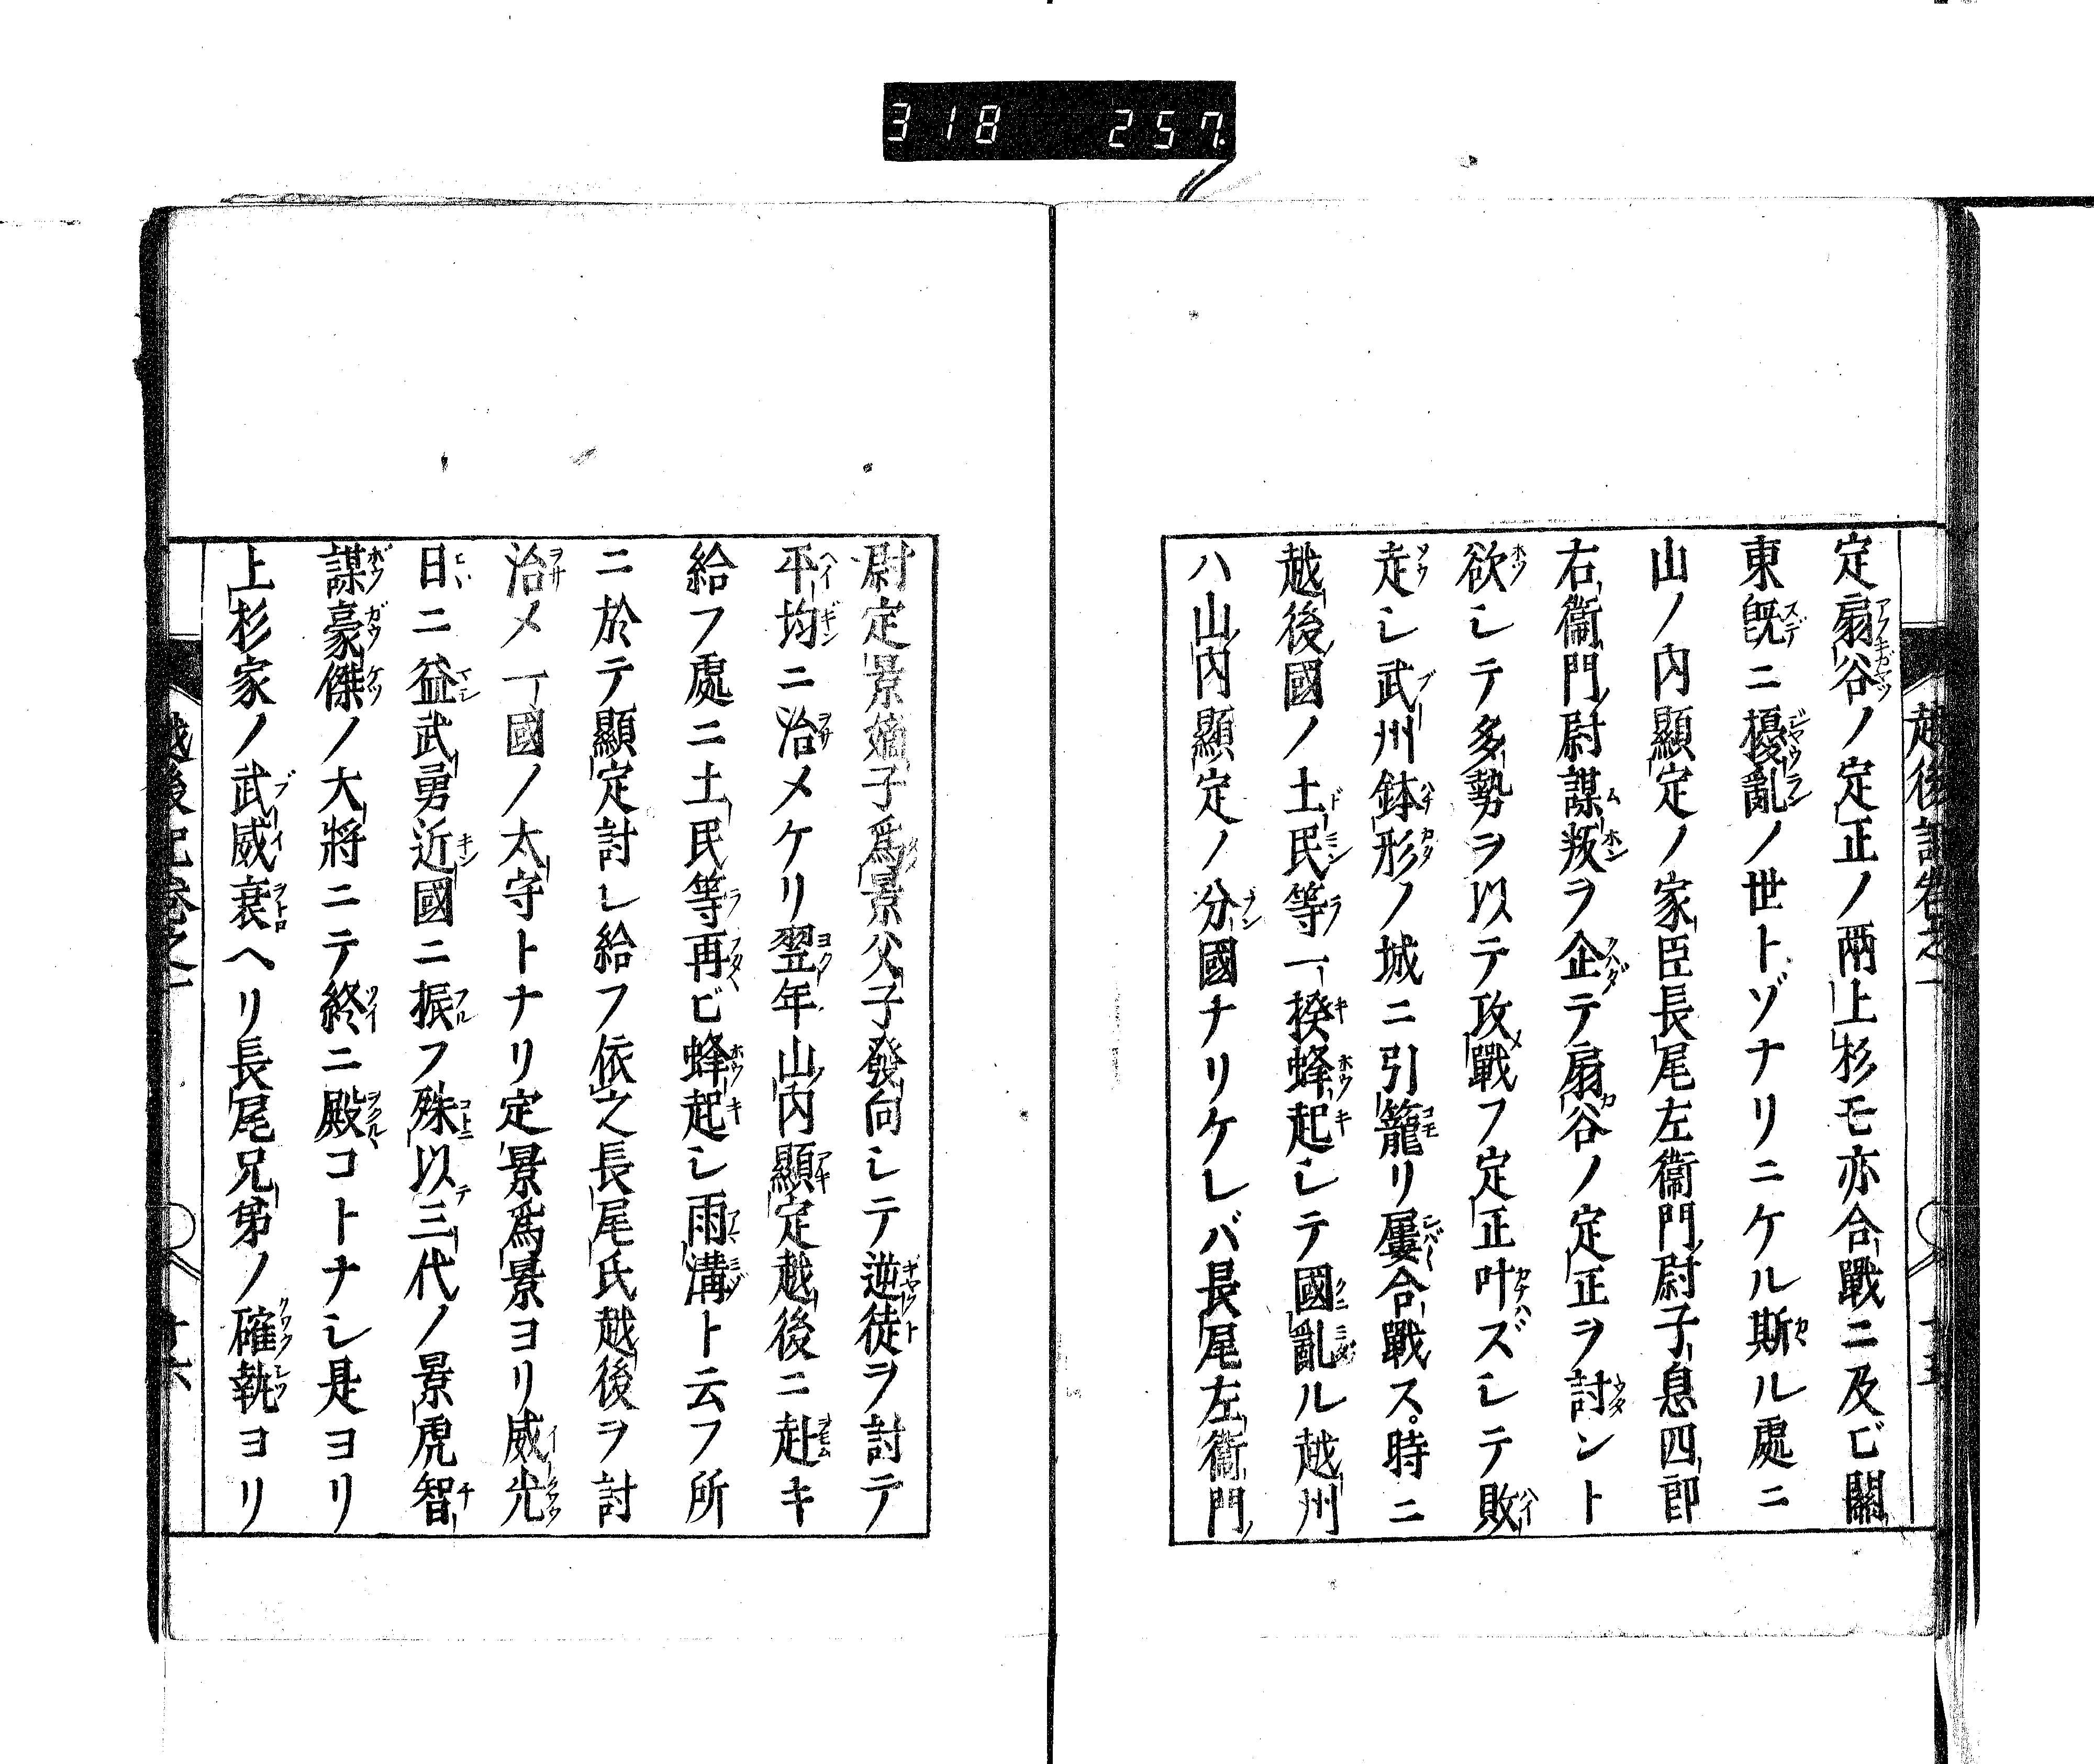 318 257
定扇谷ノ定正ノ兩上杉モ亦合戰ニ及ビ關
東既ニ擾亂ノ世トゾナリニケル斯ル處ニ
山ノ內顯定ノ家臣長尾左衞門尉子息四郎
右衞門尉謀叛ヲ企テ扇谷ノ定正ヲ討ント
欲シテ多勢ヲ以テ攻戰フ定正叶ズシテ敗
走シ武州鉢形ノ城ニ引籠リ屢合戰ス時ニ
越後國ノ土民等一揆蜂起シテ國亂ル越州
ハ山內顯定ノ分國ナリケレバ長尾左衞門
尉定景嫡子爲景父子發向シテ逆徒ヲ討テ
平均ニ治メケリ翌年山內顯定越後ニ赴キ
給フ處ニ土民等再ビ蜂起シ雨溝ト云フ所
ニ於テ顯定討レ給フ依之長尾氏越後ヲ討
治メ一國ノ太守トナリ定景爲景ヨリ威光
日ニ益武勇近國ニ振フ殊以三代ノ景虎智
謀豪傑ノ大將ニテ終ニ殿コトナシ是ヨリ
上杉家ノ武威衰ヘリ長尾兄弟ノ確執ヨリ
越後記卷之一